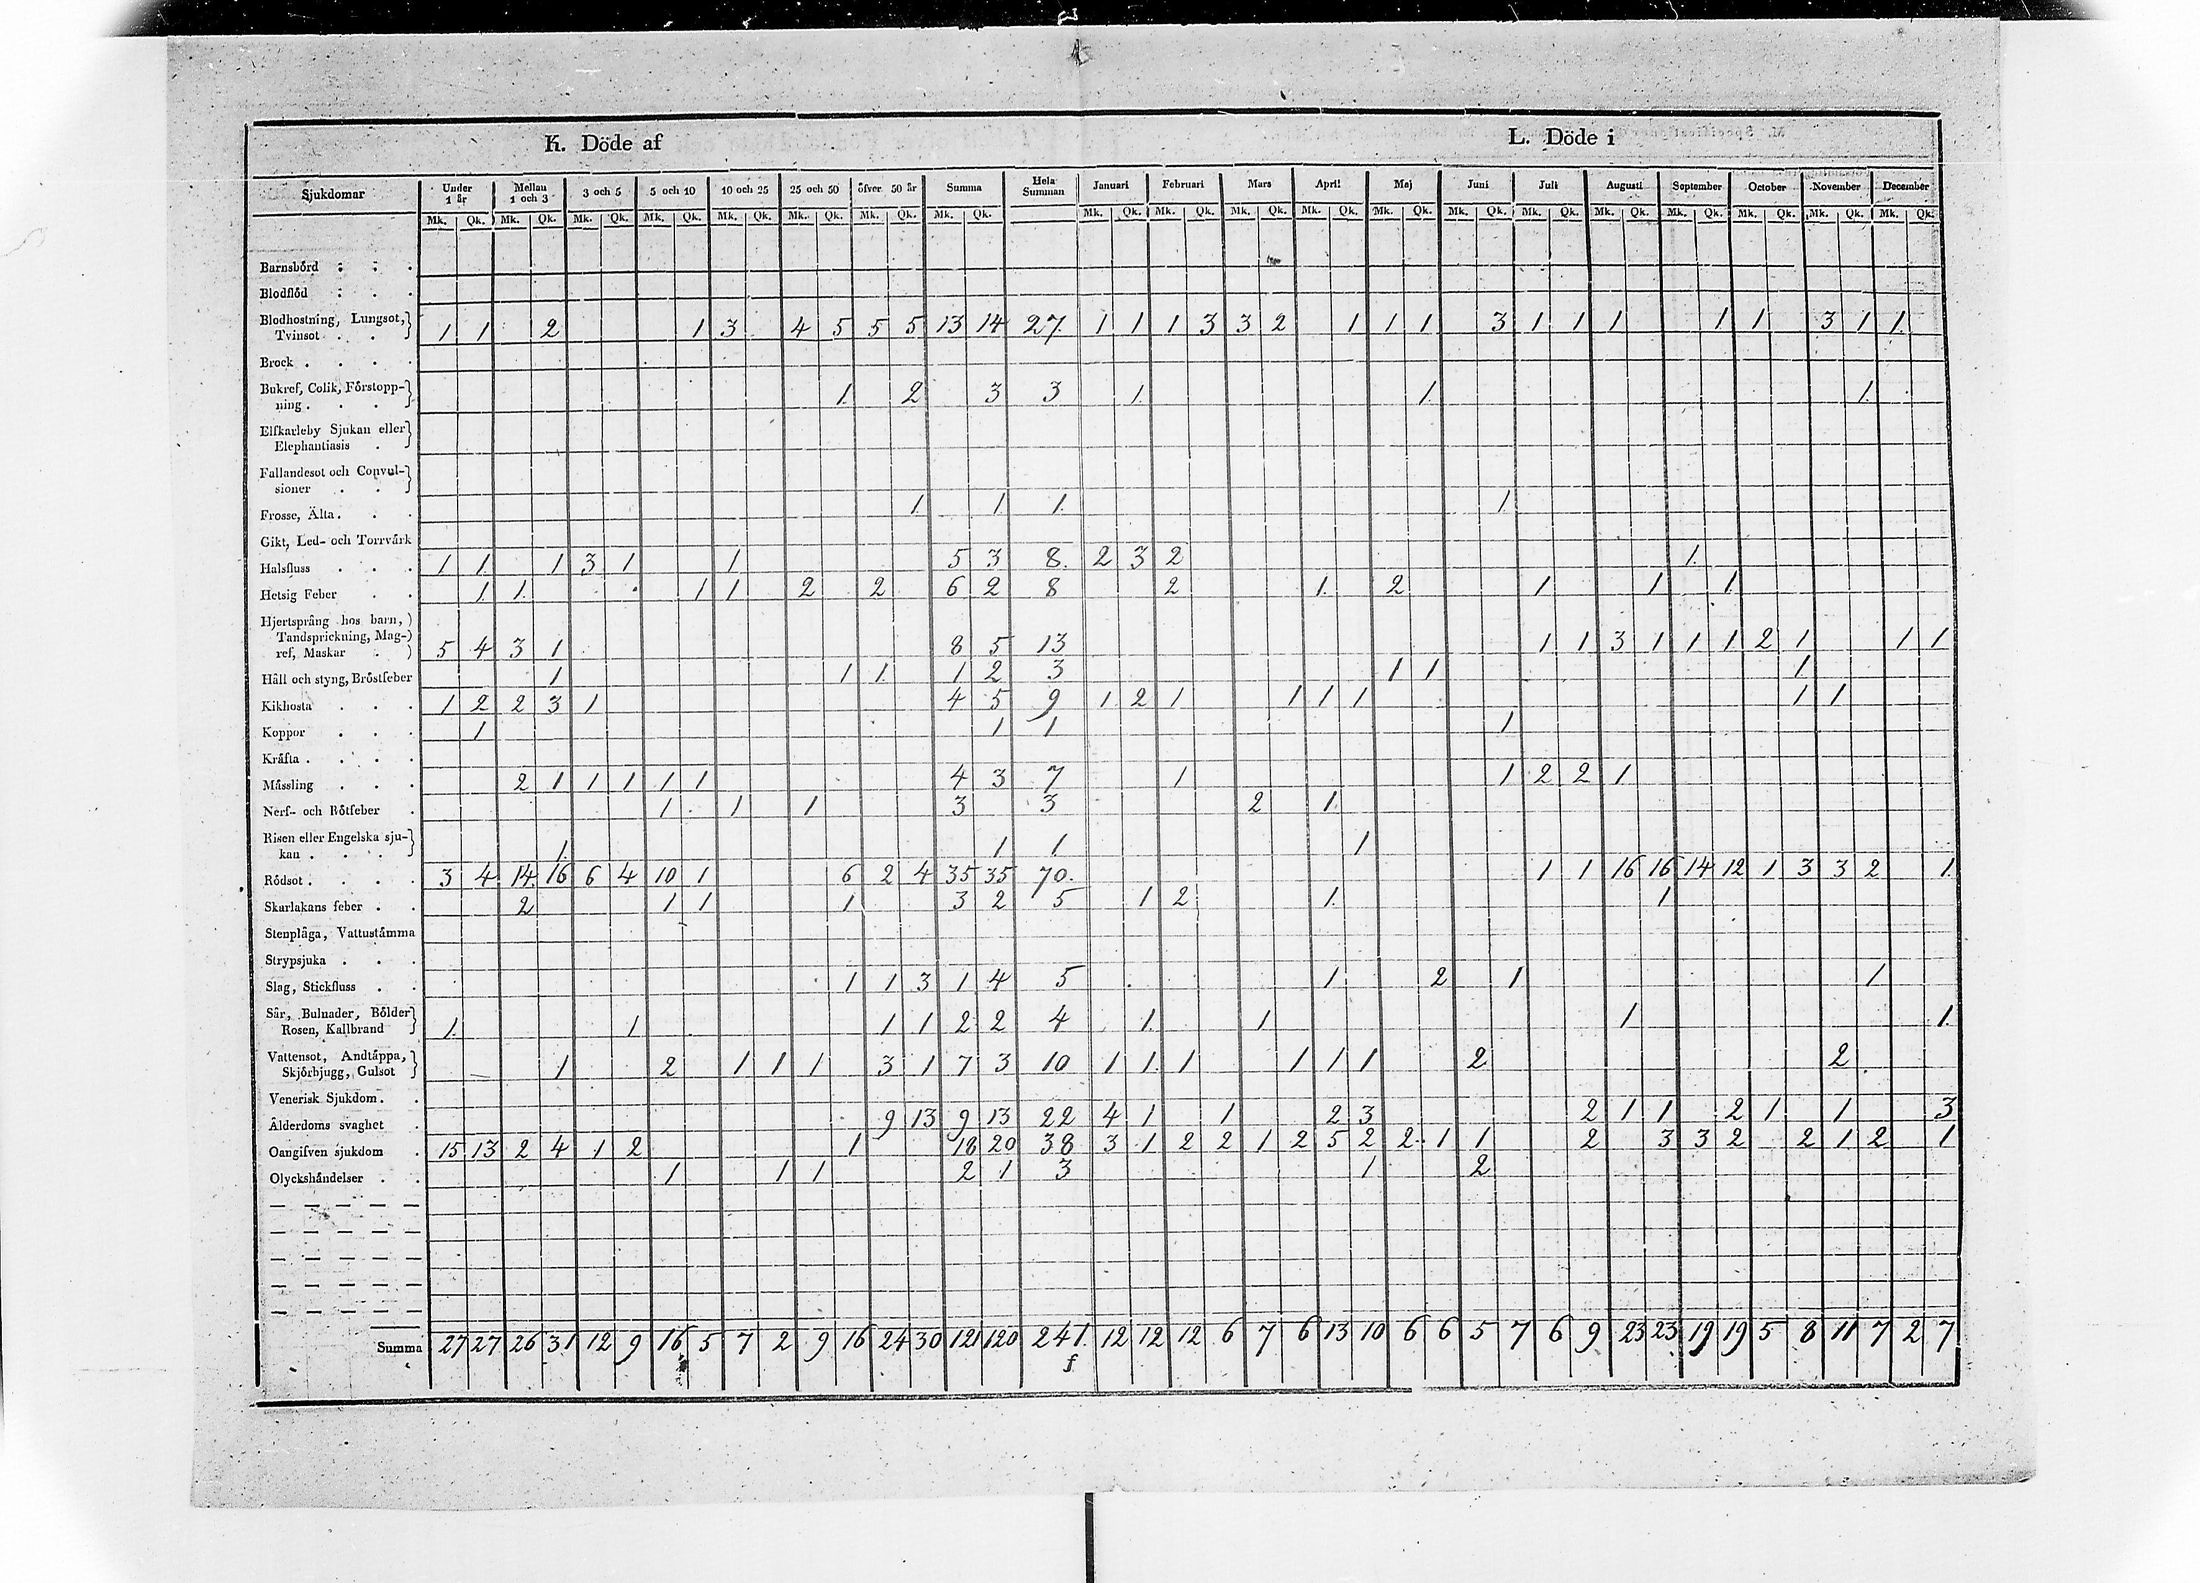 K. Döde af L. Döde i
Sjukdomar Under 1 år Mellan 1 och 3 3 och 5 5 och 10 10 och 25 25 och 50 öfver 50 år Summa Hela Summan Januari Februari Mars April Maj Juni Juli Augusti September October November December
Mk. Qk. Mk. Qk. Mk. Qk. Mk. Qk. Mk. Qk. Mk. Qk. Mk. Qk. Mk. Qk. Mk. Qk. Mk. Qk. Mk. Qk. Mk. Qk. Mk. Qk. Mk. Qk. Mk. Qk. Mk. Qk. Mk. Qk. Mk. Qk. Mk. Qk. Mk. Qk.
Barnsbörd
Blodflöd
Blodhostning, Lungsot,
Tvinsot 1 1 2 1 3 4 5 5 5 13 14 27 1 1 1 3 3 2 1 1 1 3 1 1 1 1 1 3 1 1
Brock
Bukref, Colik, Förstopp-
ning 1 2 3 3 1 1 1
Elfkarleby Sjukan eller
Elephantiasis
Fallandesot och Convul-
sioner
Frosse, Älta 1 1 1 1
Gikt, Led- och Torrvärk
Halsfluss 1 1 1 3 1 1 5 3 8 2 3 2 1
Hetsig Feber 1 1 1 1 2 2 6 2 8 2 1 2 1 1 1
Hjertsprång hos barn,
Tandsprickning, Mag-
ref, Maskar 5 4 3 1 8 5 13 1 1 3 1 1 1 2 1 1 1
Håll och styng, Bröstfeber 1 1 1 1 2 3 1 1 1
Kikhosta 1 2 2 3 1 4 5 9 1 2 1 1 1 1 1 1
Koppor 1 1 1 1
Kräfta
Mässling 2 1 1 1 1 1 4 3 7 1 1 2 2 1
Nerf- och Rötfeber 1 1 1 3 3 2 1
Risen eller Engelska sju-
kan 1 1 1 1
Rödsot 3 4 14 16 6 4 10 1 6 2 4 35 35 70 1 1 16 16 14 12 1 3 3 2 1
Skarlakans feber 2 1 1 1 3 2 5 1 2 1 1
Stenplåga, Vattustämma
Strypsjuka
Slag, Stickfluss 1 1 3 1 4 5 1 2 1 1
Sår, Bulnader, Bölder
Rosen, Kallbrand 1 1 1 1 2 2 4 1 1 1 1
Vattensot, Andtäppa,
Skjörbjugg, Gulsot 1 2 1 1 1 3 1 7 3 10 1 1 1 1 1 1 2 2
Venerisk Sjukdom
Ålderdoms svaghet 9 13 9 13 22 4 1 1 2 3 2 1 1 2 1 1 3
Oangifven sjukdom 15 13 2 4 1 2 1 18 20 38 3 1 2 2 1 2 5 2 2 1 1 2 3 3 2 2 1 2 1
Olyckshändelser 1 1 1 2 1 3 1 2
Summa 27 27 26 31 12 9 16 5 7 2 9 16 24 30 121 120 241 12 12 12 6 7 6 13 10 6 6 5 7 6 9 23 23 19 19 5 8 11 7 2 7